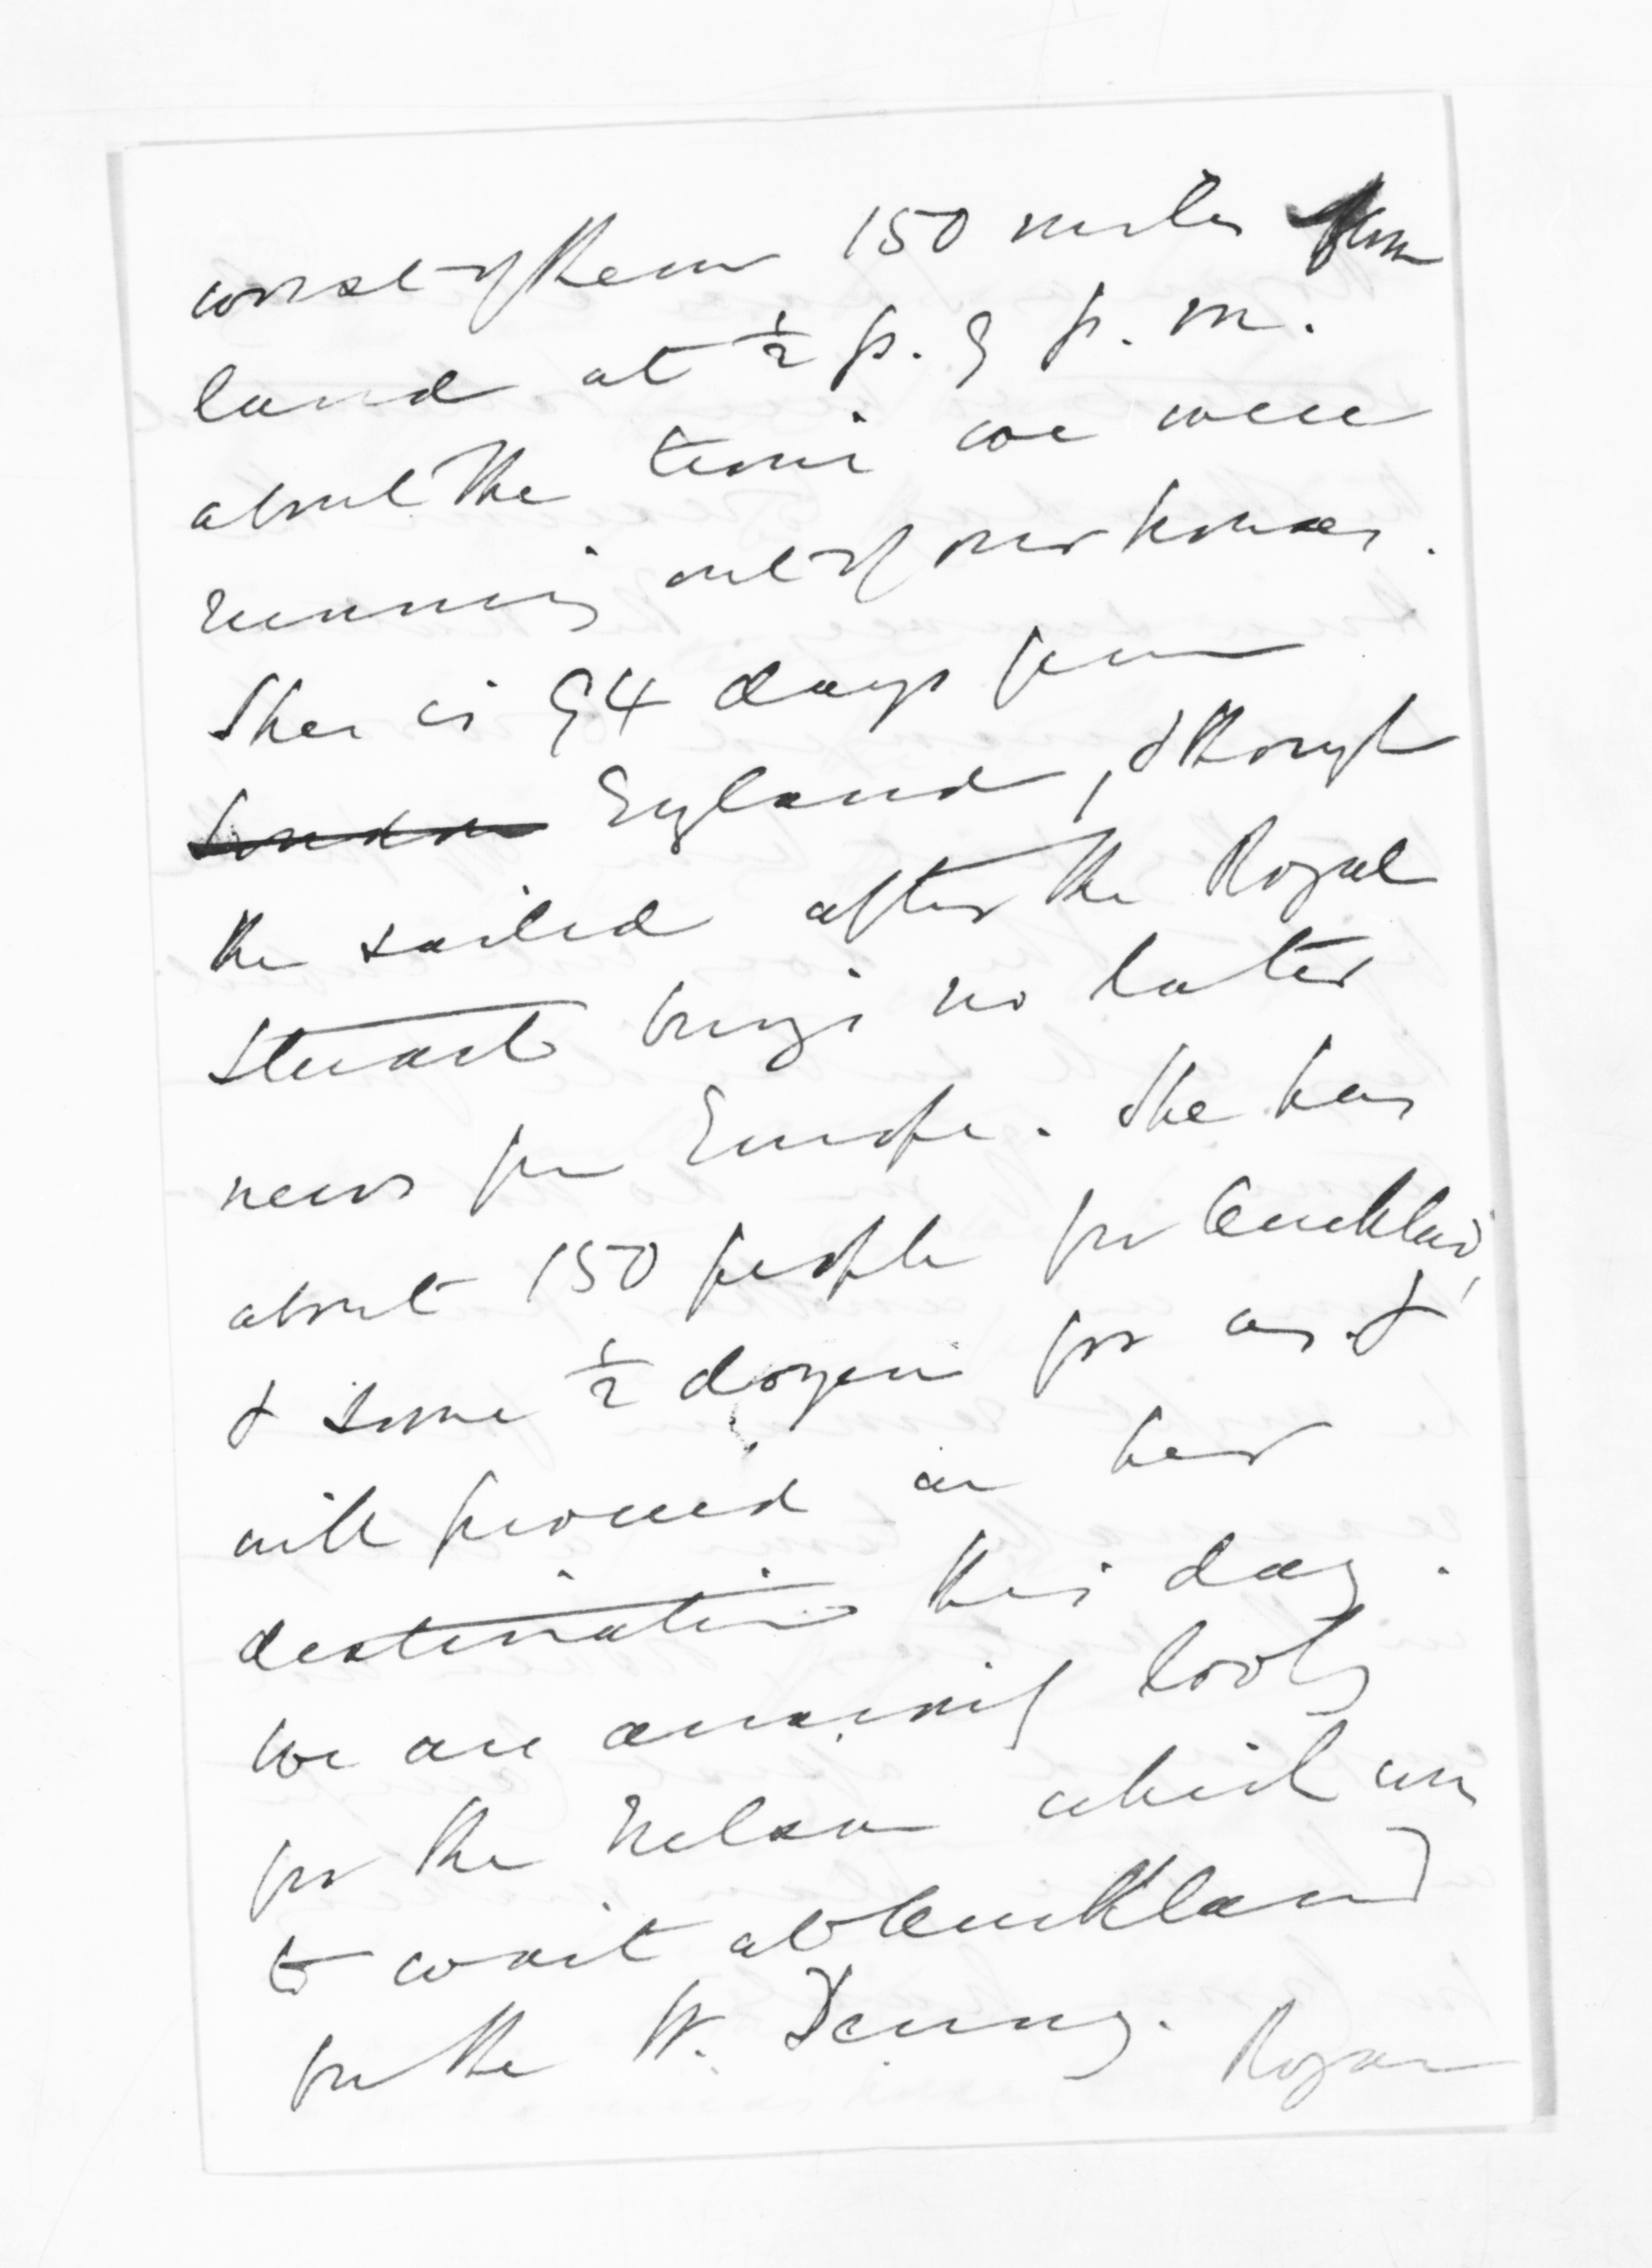 worst of them 150 miles from
land at ½ p. 9 p. m.
about the time we were
running out of our houses.
She is 94 days from
London England, & though
she sailed after the Royal
Stuart brings no later
news from Europe. She has
about 150 people for Auckland,
& some ½ dozen for us &
will proceed to her
destination this day.
We are anxiously looking
for the Nelson which was
to wait at Auckland
for the W. Denny. Rogan